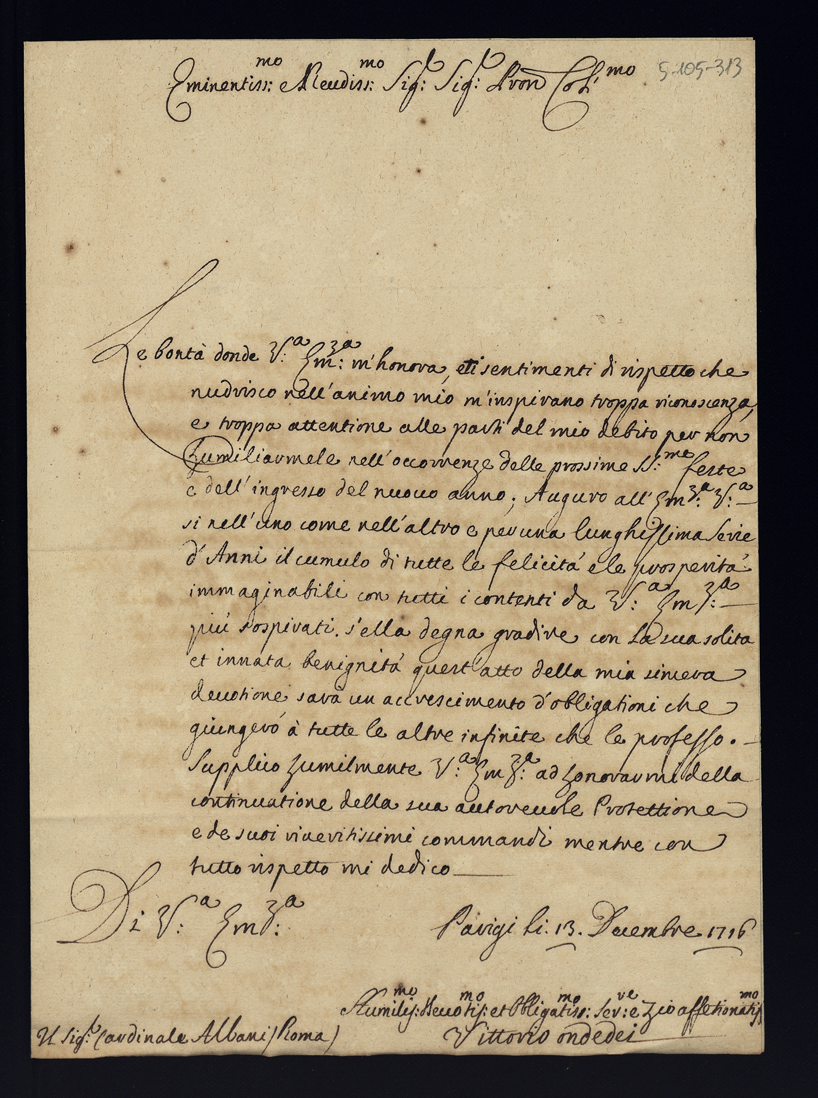 Eminentiss:mo e Reudiss:mo Sigr: Sigr: Pron Col:mo 5-105-313
Le bontà donde V:a Em:za m'honora, et i sentimenti di rispetto che
nudrisco nell'animo mio m'inspirano troppa riconoscenza,
e troppa attentione alle parti del mio debito per non
humiliarmele nell'occorrenze delle prossime SS:me feste
e dell'ingresso del nuouo anno; Auguro all'Emza: V:a
si nell'uno come nell'altro e per una lunghissima serie
d'Anni il cumulo di tutte le felicità e le prosperità
immaginabili con tutti i contenti da V:a Emza:
più sospirati. s'ella degna gradire con la sua solita
et innata benignità quest'atto della mia sincera
deuotione sarà un accrescimento d'obligationi che
giungerò à tutte le altre infinite che le professo.
Supplico humilmente V:a Emza: ad honorarmi della
continuatione della sua autoreuole Protettione
e de suoi riueritissimi commandi mentre con
tutto rispetto mi dedico
Di V:a Emza:
Parigi li: 13. Decembre 1716
Humilis:mo Deuotis:mo et Obligatiss:mo Ser:ve e Zio affetionatismo
Vittorio ondedei
Il Sigr: Cardinale Albani (Roma)